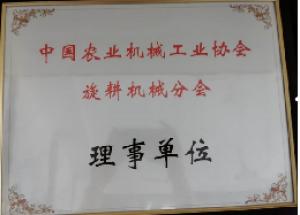 中国农业机械工业协会
旋耕机械分会
理事单位